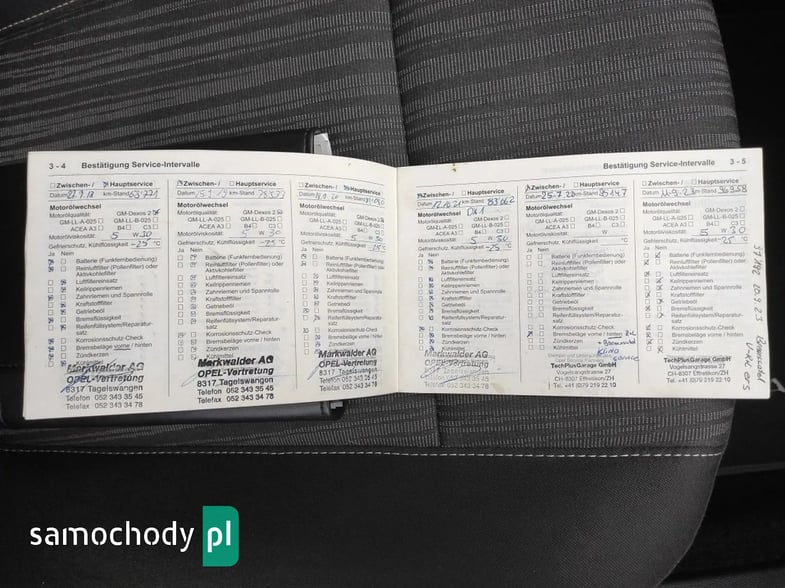 3 - 4 Bestätigung Service-Intervalle
Zwischen- / Hauptservice
Datum 27.9.18 km-Stand
Motorölwechsel
Motorölqualität GM-Dexos 2
GM-LL-A-025 GM-LL-B-025
ACEA A3 B4 C3
Motorölviskosität: 5 W 30
Gefrierschutz, Kühlflüssigkeit -25 °C
Ja Nein
Batterie (Funkfernbedienung)
Reinluftfilter (Pollenfilter) oder
Aktivkohlefilter
Luftfiltereinsatz
Keilrippenriemen
Zahnriemen und Spannrolle
Kraftstofffilter
Getriebeöl
Bremsflüssigkeit
Reifenfüllsystem/Reparatur-
satz
Korrosionsschutz-Check
Bremsbeläge vorne / hinten
Zündkerzen
Kühlmittel
Markwalder AG
OPEL-Vertretung
8317 Tagelswangen
Telefon 052 343 35 45
Telefax 052 343 34 78
Zwischen- / Hauptservice
Datum km-Stand
Motorölwechsel
Motorölqualität GM-Dexos 2
GM-LL-A-025 GM-LL-B-025
ACEA A3 B4 C3
Motorölviskosität: 5 W 30
Gefrierschutz, Kühlflüssigkeit -25 °C
Ja Nein
Batterie (Funkfernbedienung)
Reinluftfilter (Pollenfilter) oder
Aktivkohlefilter
Luftfiltereinsatz
Keilrippenriemen
Zahnriemen und Spannrolle
Kraftstofffilter
Getriebeöl
Bremsflüssigkeit
Reifenfüllsystem/Reparatur-
satz
Korrosionsschutz-Check
Bremsbeläge vorne / hinten
Zündkerzen
Kühlmittel
Markwalder AG
OPEL-Vertretung
8317 Tagelswangen
Telefon 052 343 35 45
Telefax 052 343 34 78
Zwischen- / Hauptservice
Datum km-Stand
Motorölwechsel
Motorölqualität GM-Dexos 2
GM-LL-A-025 GM-LL-B-025
ACEA A3 B4 C3
Motorölviskosität: 5 W 30
Gefrierschutz, Kühlflüssigkeit
Ja Nein
Batterie (Funkfernbedienung)
Reinluftfilter (Pollenfilter) oder
Aktivkohlefilter
Luftfiltereinsatz
Keilrippenriemen
Zahnriemen und Spannrolle
Kraftstofffilter
Getriebeöl
Bremsflüssigkeit
Reifenfüllsystem/Reparatur-
satz
Korrosionsschutz-Check
Bremsbeläge vorne / hinten
Zündkerzen
Kühlmittel
Markwalder AG
OPEL-Vertretung
8317 Tagelswangen
Telefon 052 343 35 45
Telefax 052 343 34 78
Bestätigung Service-Intervalle 3 - 5
Zwischen- / Hauptservice
Datum 12.10.21 km-Stand 83662
Motorölwechsel
Motorölqualität GM-Dexos 2
GM-LL-A-025 GM-LL-B-025
ACEA A3 B4 C3
Motorölviskosität: 5 W 30
Gefrierschutz, Kühlflüssigkeit -25 °C
Ja Nein
Batterie (Funkfernbedienung)
Reinluftfilter (Pollenfilter) oder
Aktivkohlefilter
Luftfiltereinsatz
Keilrippenriemen
Zahnriemen und Spannrolle
Kraftstofffilter
Getriebeöl
Bremsflüssigkeit
Reifenfüllsystem/Reparatur-
satz
Korrosionsschutz-Check
Bremsbeläge vorne / hinten
Zündkerzen
Kühlmittel
Markwalder AG
OPEL-Vertretung
8317 Tagelswangen
Telefon 052 343 35 45
Telefax 052 343 34 78
Zwischen- / Hauptservice
Datum km-Stand
Motorölwechsel
Motorölqualität GM-Dexos 2
GM-LL-A-025 GM-LL-B-025
ACEA A3 B4 C3
Motorölviskosität: W
Gefrierschutz, Kühlflüssigkeit °C
Ja Nein
Batterie (Funkfernbedienung)
Reinluftfilter (Pollenfilter) oder
Aktivkohlefilter
Luftfiltereinsatz
Keilrippenriemen
Zahnriemen und Spannrolle
Kraftstofffilter
Getriebeöl
Bremsflüssigkeit
Reifenfüllsystem/Reparatur-
satz
Korrosionsschutz-Check
Bremsbeläge vorne / hinten
Zündkerzen
Kühlmittel
Service
TechPlusGarage GmbH
Vogelsangstrasse 27
CH-8307 Effretikon/ZH
Tel. +41 (0)79 219 22 10
Zwischen- / Hauptservice
Datum 11.9.23 km-Stand 96358
Motorölwechsel
Motorölqualität GM-Dexos 2
GM-LL-A-025 GM-LL-B-025
ACEA A3 B4 C3
Motorölviskosität: 5 W 30
Gefrierschutz, Kühlflüssigkeit -25 °C
Ja Nein
Batterie (Funkfernbedienung)
Reinluftfilter (Pollenfilter) oder
Aktivkohlefilter
Luftfiltereinsatz
Keilrippenriemen
Zahnriemen und Spannrolle
Kraftstofffilter
Getriebeöl
Bremsflüssigkeit
Reifenfüllsystem/Reparatur-
satz
Korrosionsschutz-Check
Bremsbeläge vorne / hinten
Zündkerzen
Kühlmittel
TechPlusGarage GmbH
Vogelsangstrasse 27
CH-8307 Effretikon/ZH
Tel. +41 (0)79 219 22 10
samochody pl